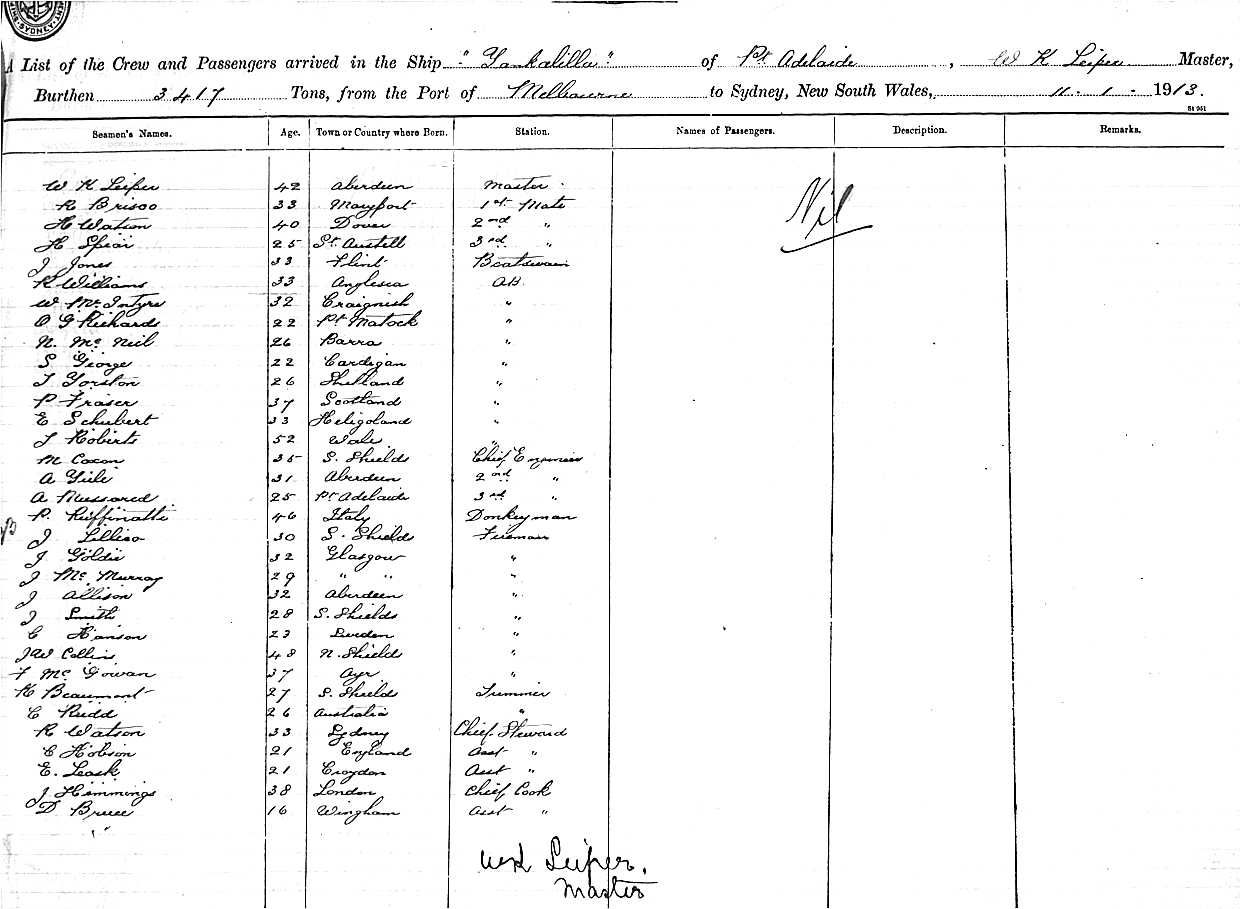 SYDNEY
A List of the Crew and Passengers arrived in the Ship "Yankalilla" of Pt. Adelaide, W K Leiper Master,
Burthen 3417 Tons, from the Port of Melbourne to Sydney, New South Wales, 11 - 1 - 1913.
St 951
Seamen's Names. Age. Town or Country where Born. Station. Names of Passengers. Description. Remarks.
W K Leiper 42 Aberdeen Master
R Brisco 33 Maryport 1st Mate
H Watson 40 Dover 2nd "
H Spear 25 St. Austell 3rd "
J Jones 33 Flint Boatswain
R Williams 33 Anglesea AB.
W McIntyre 32 Craignish "
O G Richards 22 Pt Matock "
N. McNeil 26 Barra "
S George 22 Cardigan "
T Yorston 26 Shetland "
P Fraser 37 Scotland "
E Schubert 33 Heligoland "
T Roberts 52 Wales "
M Coxon 35 S. Shields Chief Engineer
A Yule 31 Aberdeen 2nd "
A Mussared 25 Pt Adelaide 3rd "
P. Ruffinatti 46 Italy Donkeyman
J 30 S. Shields Fireman
J Goldie 32 Glasgow "
J McMurray 29 " " "
J Allison 32 Aberdeen "
J Smith 28 S. Shields "
C Hanson 23 Sweden "
J W Collin 48 N. Shield "
F McGowan 37 Ayr "
H Beaumont 27 S. Shields Trimmer
C Rudd 26 Australia "
R Watson 33 Sydney Chief Steward
C Hobson 21 England Asst "
E. Leask 21 Croydon Asst "
J Himmings 38 London Chief Cook
D. Bruce 16 Wingham Asst "
Nil
WK Leiper.
Master